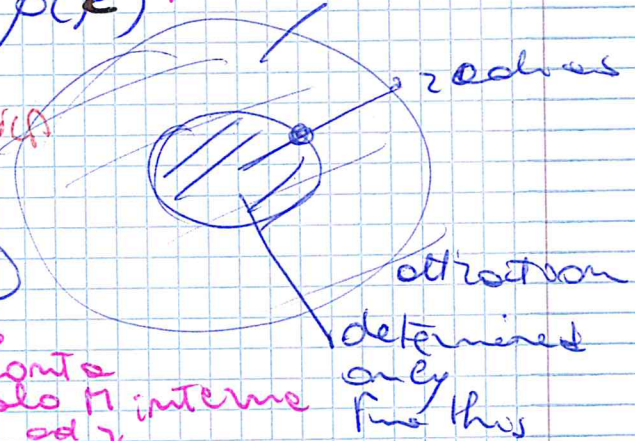 ρ(r)
r radius
attraction
determined
only
from this
conta
solo M interne
ad r